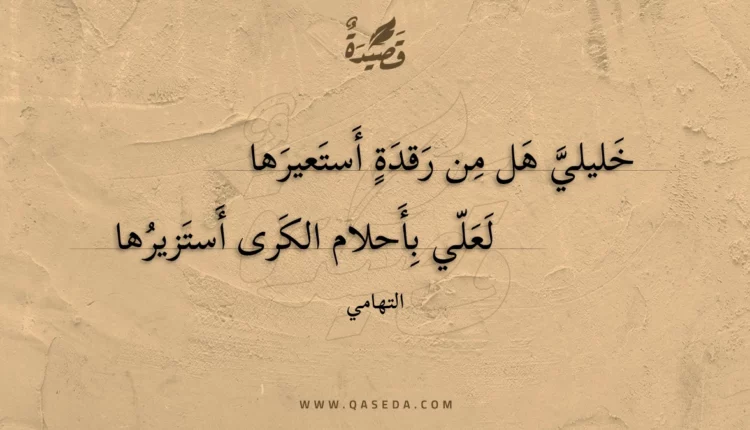 قَصِيدَةٌ
خَليليَّ هَل مِن رَقدَةٍ أَستَعيرَها
لَعَلّي بِأَحلام الكَرى أَستَزيرُها
التهامي
WWW.QASEDA.COM